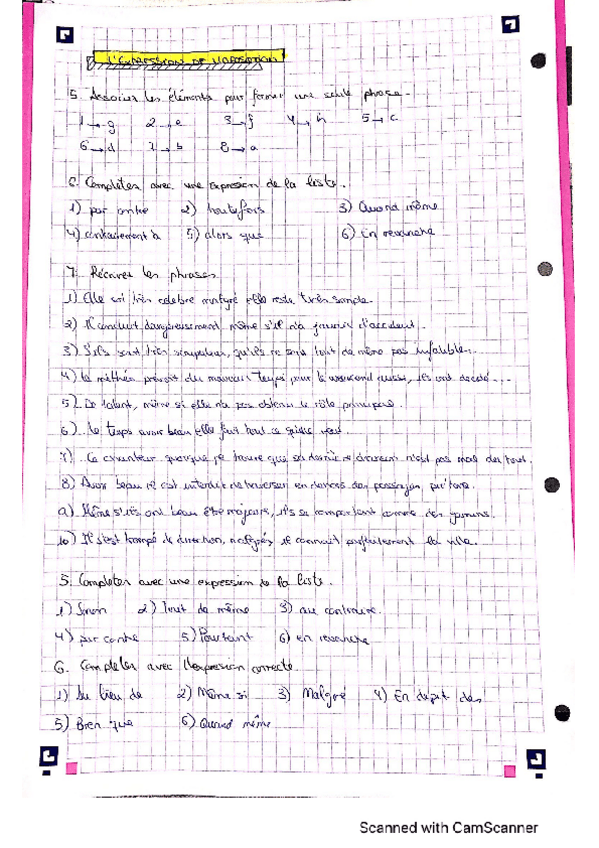 L'EXPRESSION DE L'OPPOSITION
5. Associer les éléments pour former une seule phrase.
1→g 2→e 3→f 4→h 5→c
6→d 7→b 8→a
6. Completer avec une expression de la liste.
1) par contre 2) toutefois 3) Quand même
4) contrairement à 5) alors que 6) En revanche
7. Réécrire les phrases
1) Elle est très celebre malgré elle reste très simple.
2) Il conduit dangereusement même s'il n'a jamais d'accident.
3) S'ils sont très scrupuleux, qu'ils ne sont tout de même pas infaillible.
4) La météo prévoit du mauvais temps pour le weekend aussi, ils ont decidé...
5) De talent, même si elle n'a pas obtenu le rôle principal.
6) Le temps avoir beau elle fait tout ce qu'elle veut.
7) Ce chanteur quoique je trouve que sa dernière chanson n'est pas mal du tout.
8) Avoir beau il est interdit de traverser en dehors des passages
9) Même s'ils ont beau être majeurs, ils se comportent comme des gamins.
10) Il s'est trompé de direction, malgrés il connait parfaitement la ville.
5. Completer avec une expression de la liste.
1) Sinon 2) Tout de même 3) au contraire.
4) par contre 5) Pourtant 6) en revanche
6. Completer avec l'expression correcte.
1) Au lieu de 2) Même si 3) Malgré 4) En depit des
5) Bien que 6) Quand même
Scanned with CamScanner